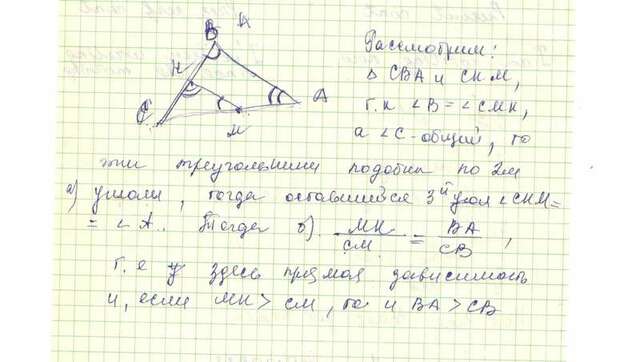 B
K
C
A
M
Рассмотрим:
Δ CBA и CKM,
т.к ∠B = ∠CMK,
а ∠C - общий, то
эти треугольники подобны по 2м
а) углам, тогда оставшийся 3й угол ∠CKM =
= ∠A. Тогда б) MK/CM = BA/CB,
т.е здесь прямая зависимость
и, если MK > CM, то и BA > CB